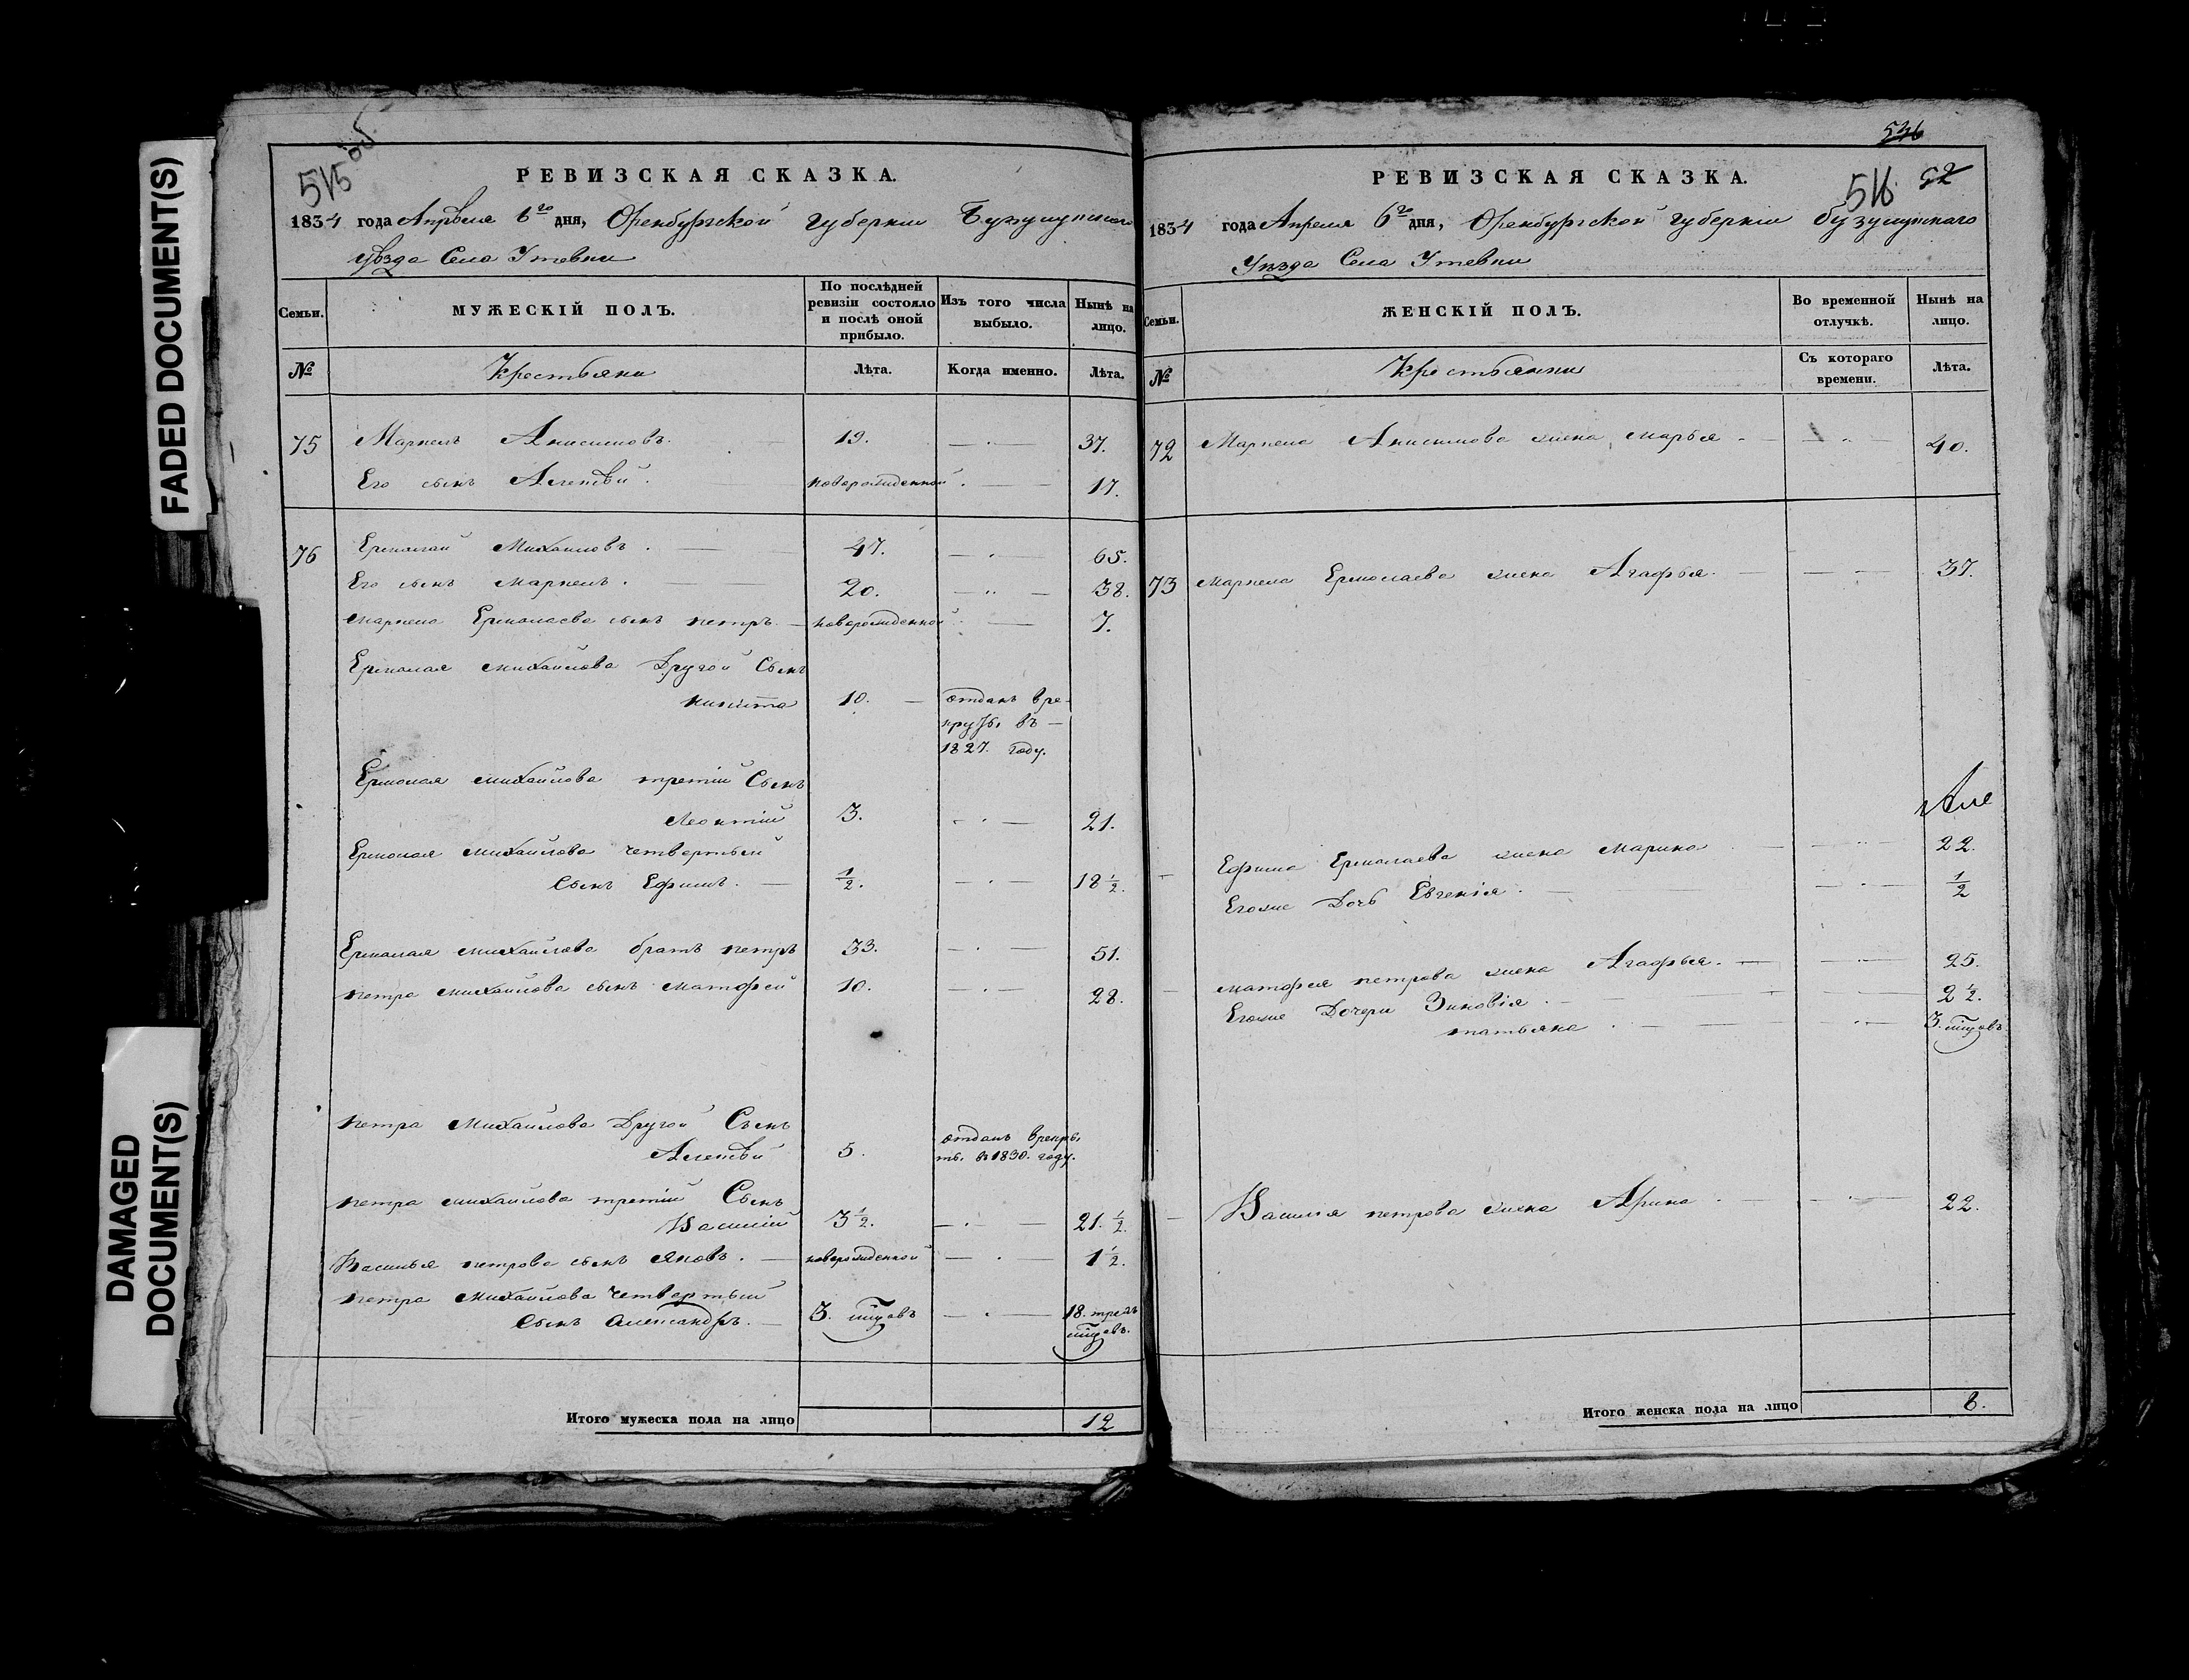 FADED DOCUMENT(S)
DAMAGED
DOCUMENT(S)
515 об
РЕВИЗСКАЯ СКАЗКА.
1834 года Апреля 6го дня, Оренбургской губернии Бузулукского
уезда Села Утевки
Семьи.
МУЖЕСКІЙ ПОЛЪ.
По послѣдней
ревизіи состояло
и послѣ оной
прибыло.
Изъ того числа
выбыло.
Нынѣ на
лицо.
№
Крестьяни
Лѣта.
Когда именно.
Лѣта.
75 Маркелъ Анисимовъ. 19. 37.
Его сынъ Алексѣй. новорожденной 17.
76 Ермолай Михайловъ. 47. 65.
Его сынъ Маркелъ. 20. 38.
Маркела Ермолаева сынъ петръ. новорожденной 7.
Ермолая михайлова Другой Сынъ
никита 10. отданъ вре-
круты въ
1827. году.
Ермолая михайлова третій Сынъ
Леонтій 3. 21.
Ермолая михайлова четвертый
Сынъ Ефимъ. 1/2. 18 1/2.
Ермолая михайлова братъ петръ 33. 51.
петра михайлова сынъ матфей 10. 28.
петра Михайлова Другой Сынъ
Алексѣй 5. отданъ врекру
ты. въ 1830. году.
петра михайлова третій Сынъ
Василій 3 1/2. 21. 1/2.
Василья петрова сынъ яковъ. новорожденной 1 1/2.
петра михайлова четвертый
Сынъ Александръ. 3. мцовъ 18. трехъ
мцовъ.
Итого мужеска пола на лицо 12
536
516. 52
РЕВИЗСКАЯ СКАЗКА.
1834 года Апреля 6го дня, Оренбургской губерніи бузулукского
Уезда Села Утевки
Семьи.
ЖЕНСКІЙ ПОЛЪ.
Во временной
отлучкѣ.
Нынѣ на
лицо.
№
Крестьянки
Съ котораго
времени.
Лѣта.
72 Маркела Анисимова жена марья 40.
73 маркела Ермолаева жена Агафья. 37.
Ефима Ермолаева жена марина 22.
Егоже Дочь Евгенія. 1/2
матфея петрова жена Агафья. 25.
Егоже Дочери Зиновія. 2 1/2.
татьяна. 3. мцовъ
Василья петрова жена Арина 22.
Итого женска пола на лицо 8.